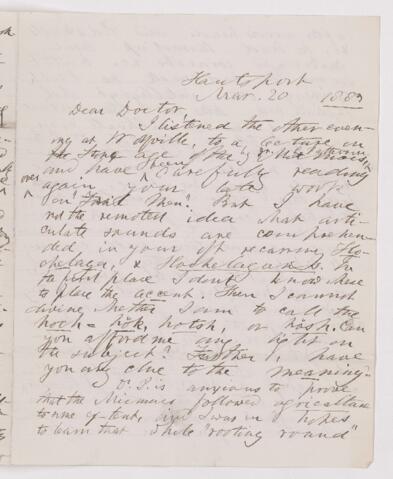 Hantsport
Mar. 20 1883
Dear Doctor,
I listened the other even-
ing at Wolfville, to a lecture on
the Stone age of the
and have been carefully reading
over again your late work
on "Fossil Men". But I have
not the remotest idea what arti-
culate sounds are comprehen-
ded in your oft recurring Ho-
chelaga, & Hochelagans. In
the first place I don't know where
to place the accent. Then I cannot
divine whether I am to call the
hoch = hok, hotsh, or hosh. Can
you afford me any light on
the subject? Further, have
you any clue to the meaning?
Dr. P. is anxious to prove
that the Micmacs followed agriculture
to some extent, and I was in hopes
to learn that while "rooting round"